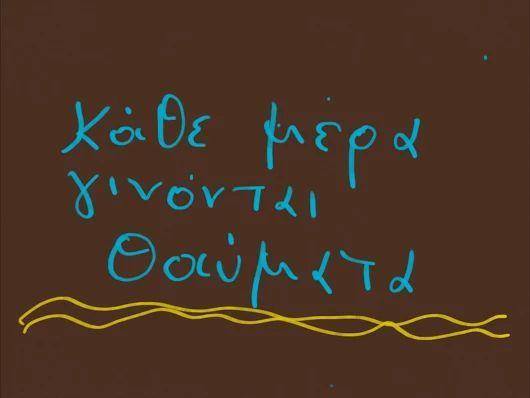 Κάθε μέρα
γινόνται
Θαύματα